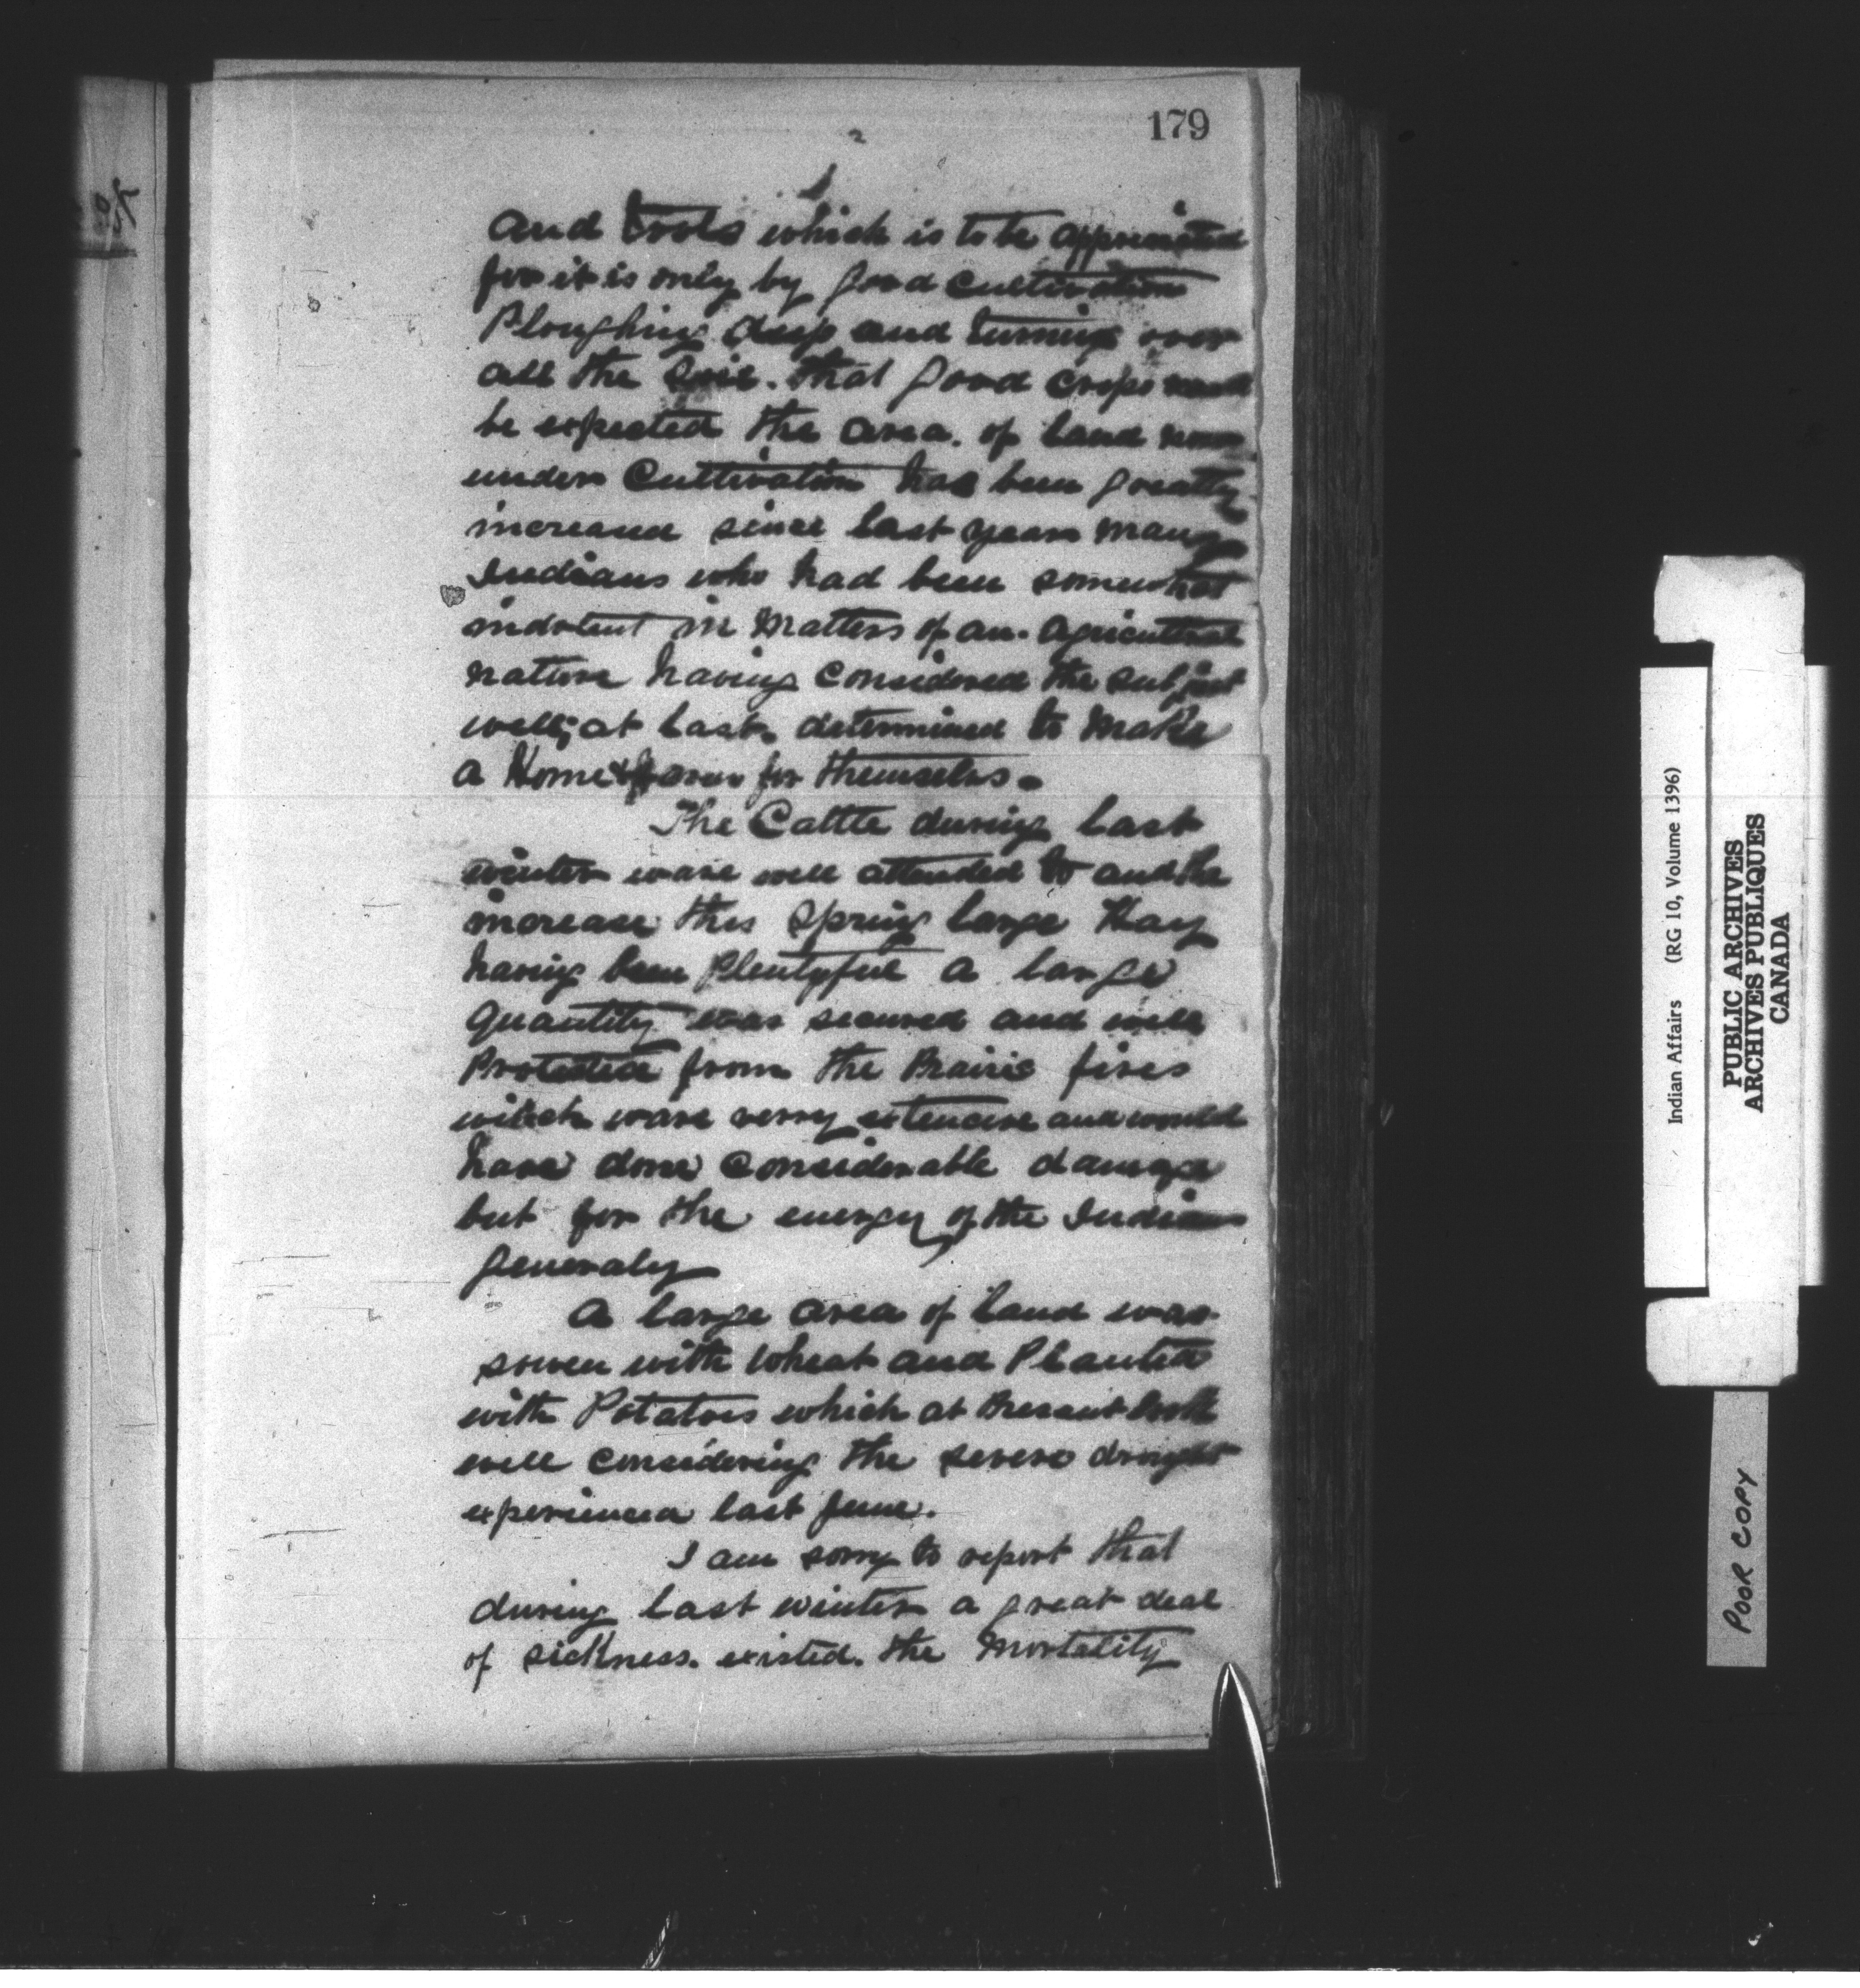 179
2
and tools which is to be appreciated
for it is only by good cultivation
Ploughing deep and turning over
all the soil. that good crops
be expected the area. of land now
under Cultivation has been greatly
increased since last years many
Indians who had been somewhat
indolent in Matters of an. agricultural
nature having considered the subject
well; at last determined to make
a Home & Farm for themselves.
The Cattle during last
winter ware well attended to and the
increase this spring large Hay
having been Plentyful a large
quantity was secured and well
Protected from the Prairie fires
which ware verry extencive and would
have done considerable damage
but for the energy of the Indians
generaly
A large area of land was
sowen with wheat and Planted
with Potatoes which at Presant look
well considering the severe drought
experienced last June.
I am sorry to report that
during last winter a great deal
of sickness. existed. the Mortality
Indian Affairs (RG 10, Volume 1396)
PUBLIC ARCHIVES
ARCHIVES PUBLIQUES
CANADA
POOR COPY